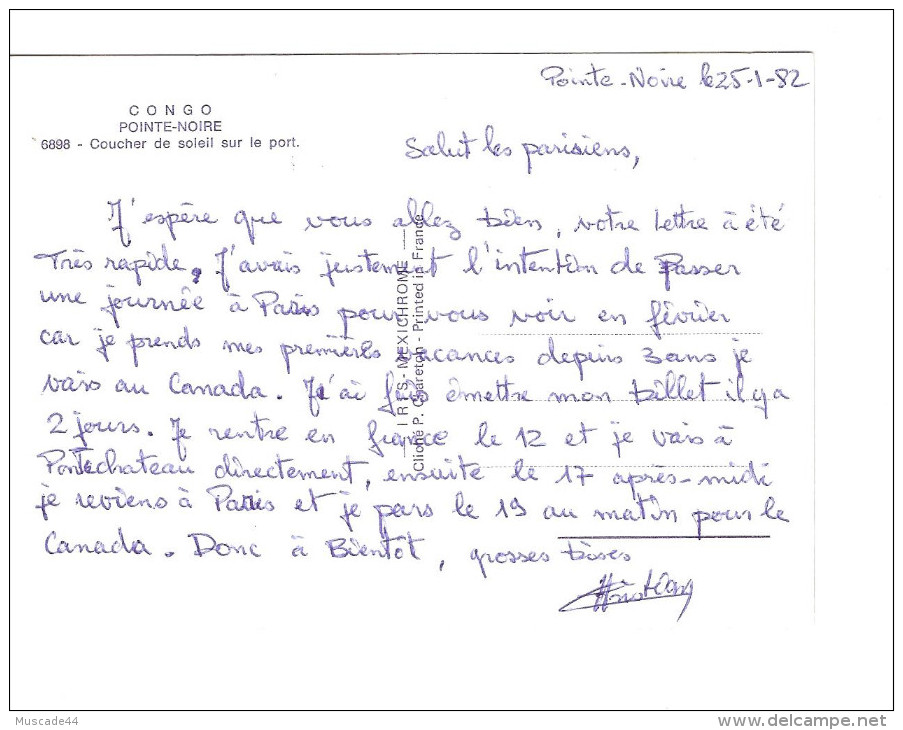 Pointe-Noire le 25-1-82
CONGO
POINTE-NOIRE
6898 - Coucher de soleil sur le port.
Salut les parisiens,
J'espère que vous allez bien, votre lettre à été
Très rapide. J'avais justement l'intention de Passer
une journée à Paris pour vous voir en février
car je prends mes premières vacances depuis 3 ans je
vais au Canada. J'ai fais émettre mon billet il y a
2 jours. Je rentre en france le 12 et je vais à
Pontchateau directement, ensuite le 17 après-midi
je reviens à Paris et je pars le 19 au matin pour le
Canada. Donc à Bientot, grosses bises
Christian
IRIS - MEXICHROME
Cliché P. Chareton - Printed in France
Muscade44
www.delcampe.net